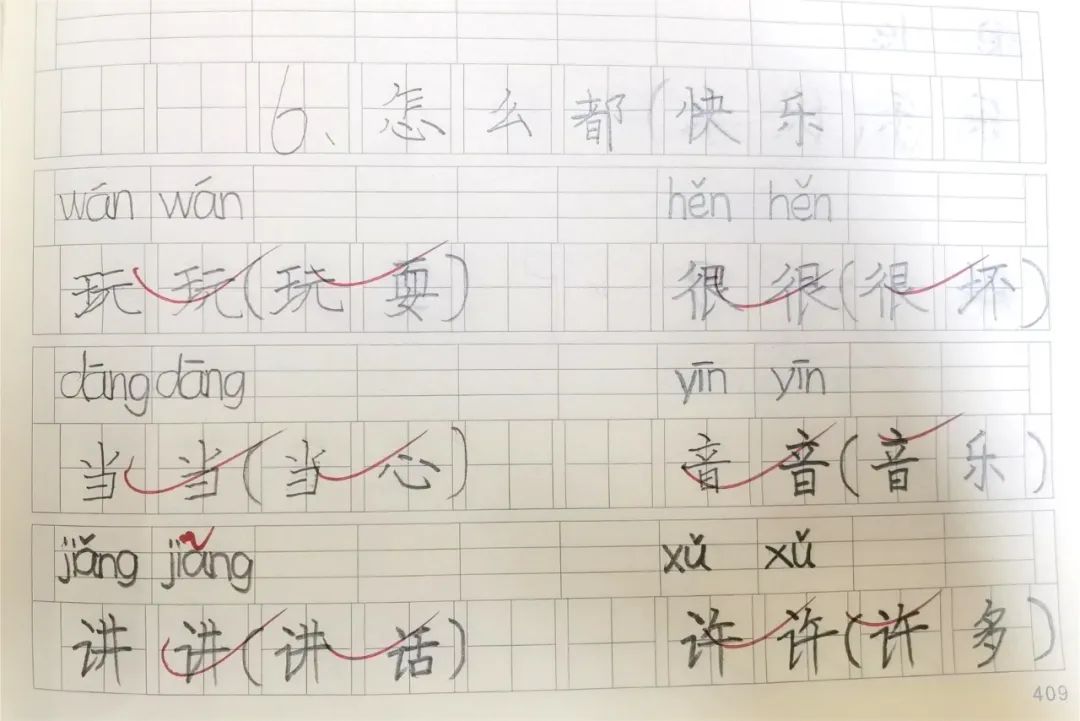 6、怎么都快乐
wán wán hěn hěn
玩玩(玩耍) 很很(很坏)
dāng dāng yīn yīn
当当(当心) 音音(音乐)
jiǎng jiǎng xǔ xǔ
讲讲(讲话) 许许(许多)
409